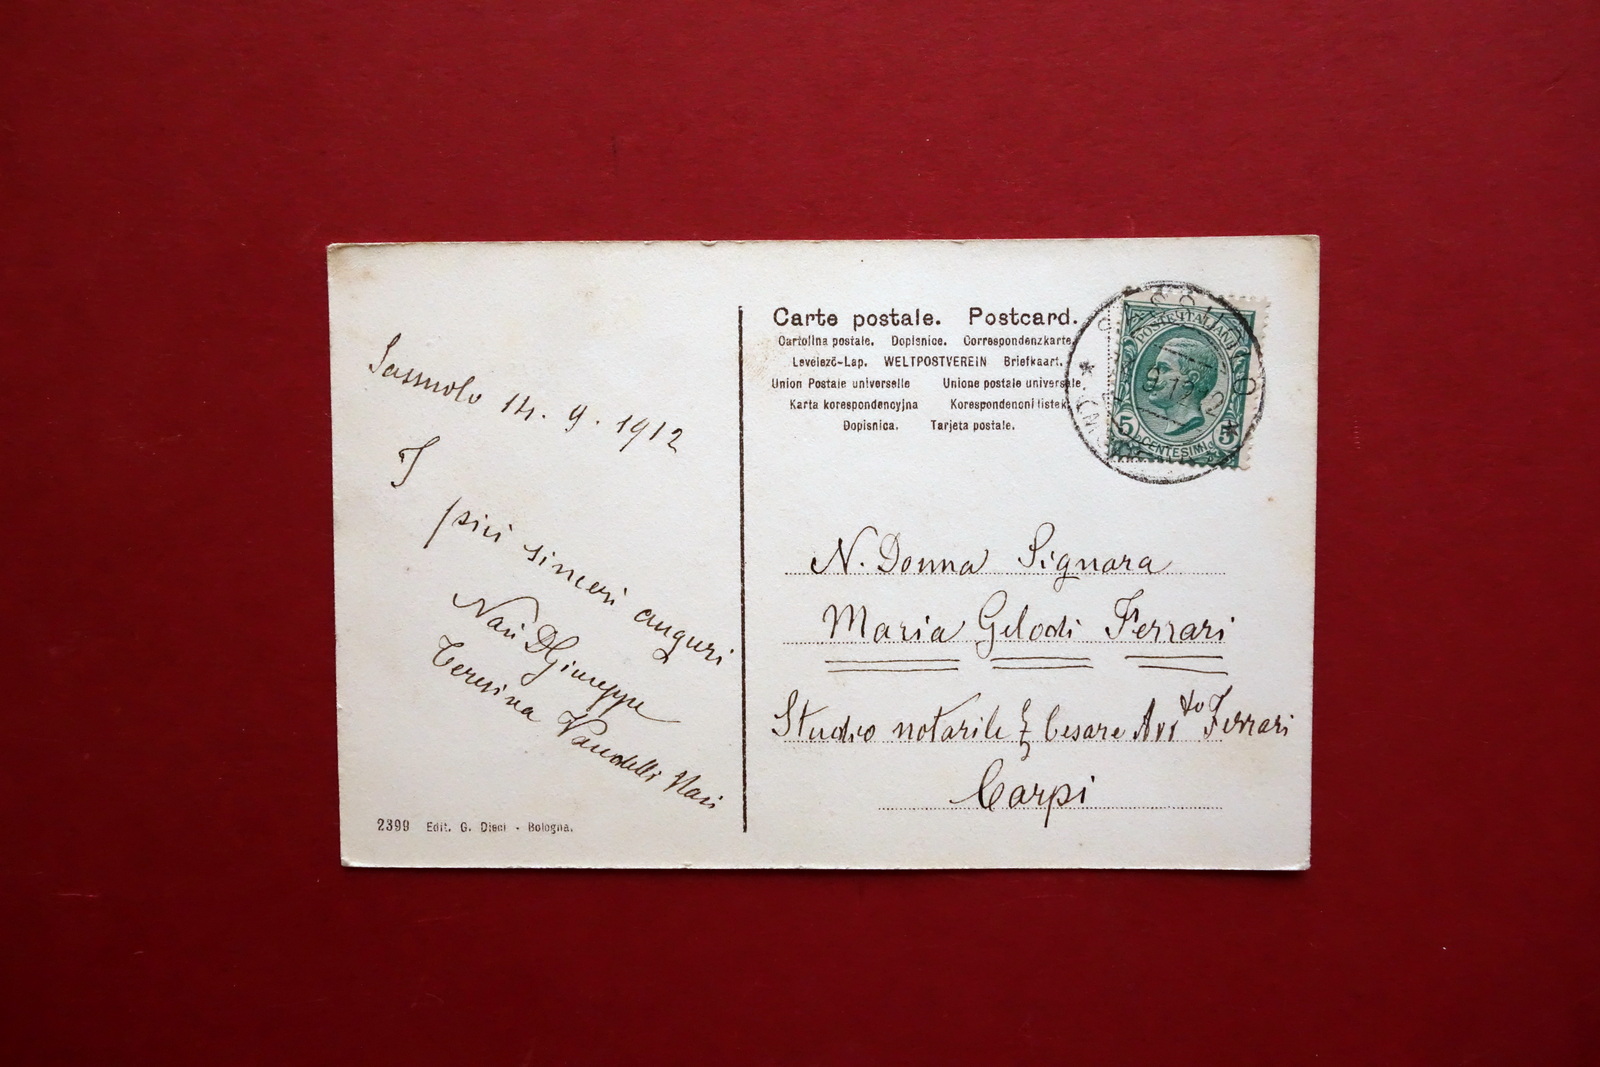 Carte postale. Postcard.
Cartolina postale. Dopisnice. Correspondenzkarte
Levelező-Lap. WELTPOSTVEREIN Briefkaart.
Union Postale universelle Unione postale universale
Karta korespondencyjna Korespondencni listek
Dopisnica. Tarjeta postale.
POSTE ITALIANE
5 CENTESIMI 5
SASSUOLO
Sassuolo 14. 9. 1912
I
più sinceri auguri
Nasi D Giuseppe
Teresina Vandelli Nasi
N. Donna Signora
Maria Gilodi Ferrari
Studio notarile Cesare Avv to Ferrari
Carpi
2399 Edit. G. Disci - Bologna.